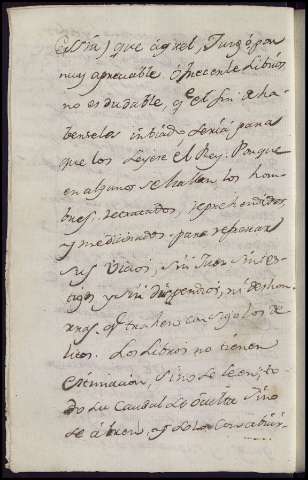 que aquel, Juzgó por
muy apreciable ofrecerle Libros
no es dudable, q.e el fin de ha
berselos inbiado, seria, para
que los Leyese el Rey. Porque
en algunos se hallan, los hom-
bres, retratados, reprehendidos,
y medicinados, para reparar
sus vicios, sin Juez, sin
y sin dispendios, ni desho-
nras, q.e trahen consigo los de
litos. Los Libros no tienen
estimacion, sino se leen; to-
do su Caudal se oculta sino
se abren, y se los